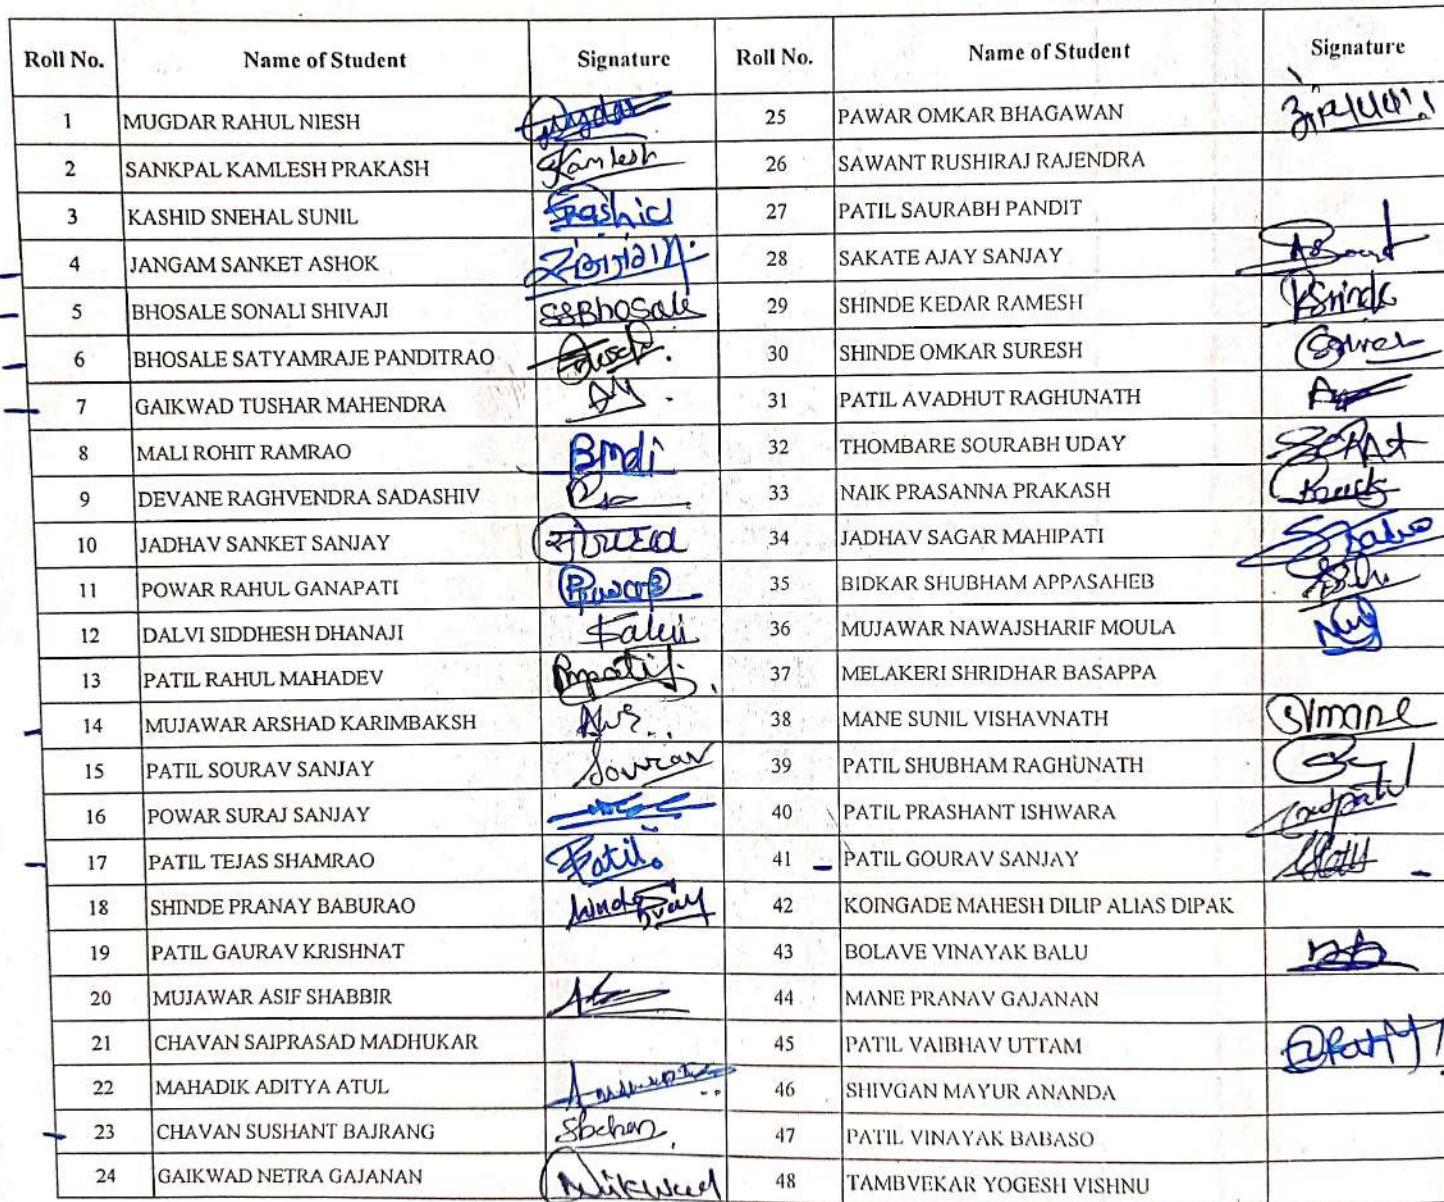 Roll No. Name of Student Signature Roll No. Name of Student Signature
1 MUGDAR RAHUL NIESH 25 PAWAR OMKAR BHAGAWAN
2 SANKPAL KAMLESH PRAKASH Kamlesh 26 SAWANT RUSHIRAJ RAJENDRA
3 KASHID SNEHAL SUNIL Kashid 27 PATIL SAURABH PANDIT
4 JANGAM SANKET ASHOK 28 SAKATE AJAY SANJAY
5 BHOSALE SONALI SHIVAJI SSBhosale 29 SHINDE KEDAR RAMESH KShinde
6 BHOSALE SATYAMRAJE PANDITRAO 30 SHINDE OMKAR SURESH
7 GAIKWAD TUSHAR MAHENDRA 31 PATIL AVADHUT RAGHUNATH
8 MALI ROHIT RAMRAO 32 THOMBARE SOURABH UDAY
9 DEVANE RAGHVENDRA SADASHIV 33 NAIK PRASANNA PRAKASH
10 JADHAV SANKET SANJAY 34 JADHAV SAGAR MAHIPATI
11 POWAR RAHUL GANAPATI 35 BIDKAR SHUBHAM APPASAHEB
12 DALVI SIDDHESH DHANAJI 36 MUJAWAR NAWAJSHARIF MOULA
13 PATIL RAHUL MAHADEV Rmpatil 37 MELAKERI SHRIDHAR BASAPPA
14 MUJAWAR ARSHAD KARIMBAKSH 38 MANE SUNIL VISHAVNATH SVmane
15 PATIL SOURAV SANJAY Sourav 39 PATIL SHUBHAM RAGHUNATH
16 POWAR SURAJ SANJAY 40 PATIL PRASHANT ISHWARA
17 PATIL TEJAS SHAMRAO Patil 41 PATIL GOURAV SANJAY
18 SHINDE PRANAY BABURAO 42 KOINGADE MAHESH DILIP ALIAS DIPAK
19 PATIL GAURAV KRISHNAT 43 BOLAVE VINAYAK BALU
20 MUJAWAR ASIF SHABBIR 44 MANE PRANAV GAJANAN
21 CHAVAN SAIPRASAD MADHUKAR 45 PATIL VAIBHAV UTTAM
22 MAHADIK ADITYA ATUL 46 SHIVGAN MAYUR ANANDA
23 CHAVAN SUSHANT BAJRANG 47 PATIL VINAYAK BABASO
24 GAIKWAD NETRA GAJANAN 48 TAMBVEKAR YOGESH VISHNU